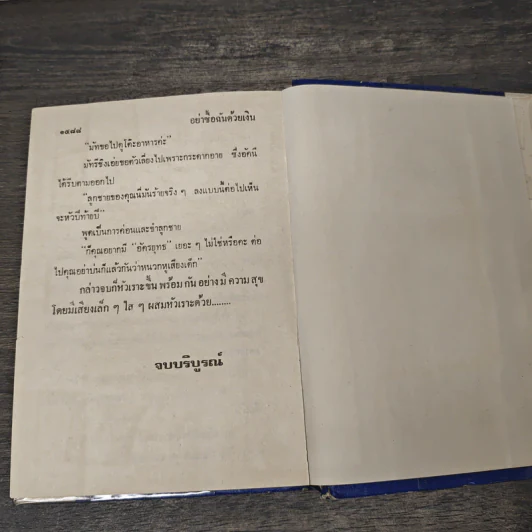 ๑๕๘๘ อย่าซื้อฉันด้วยเงิน
"มัทขอไปดูโต๊ะอาหารค่ะ"
มัทรีซึ่งเอ่ยขอตัวเลี่ยงไปเพราะกระดากอาย ซึ่งอัคนี
ได้รีบตามออกไป
"ลูกชายของคุณนี่มันร้ายจริง ๆ ลงแบบนี้ต่อไปเห็น
จะหัวปีท้ายปี"
พูดเป็นการค่อนแคะว่าลูกชาย
"ก็คุณอยากมี "อัครยุทธ" เยอะ ๆ ไม่ใช่หรือคะ ต่อ
ไปคุณอย่าบ่นก็แล้วกันว่าหนวกหูเสียงเด็ก"
กล่าวจบก็หัวเราะขึ้น พร้อม กัน อย่าง มี ความ สุข
โดยมีเสียงเล็ก ๆ ใส ๆ ผสมหัวเราะด้วย........
จบบริบูรณ์